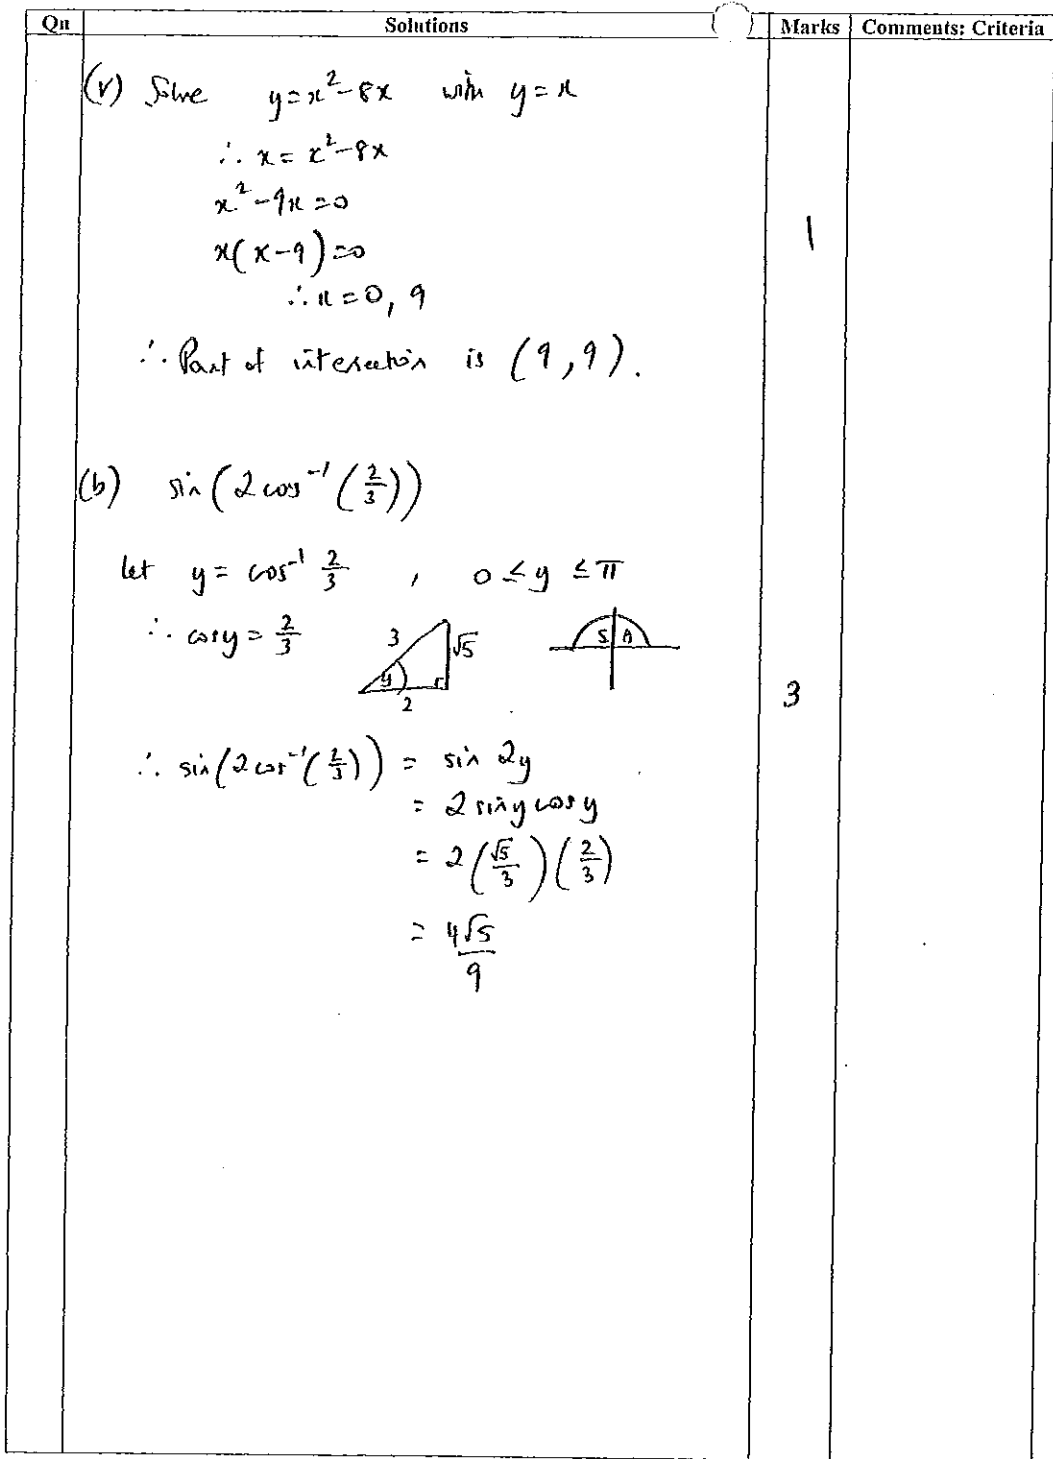 Qn Solutions Marks Comments: Criteria
(v) Solve y=x²-8x with y=x
∴ x = x²-8x
x²-9x=0
x(x-9)=0
1
∴ x=0, 9
∴ Point of intersection is (9,9).
(b) sin(2cos⁻¹(2/3))
let y = cos⁻¹ 2/3 , 0 ≤ y ≤ π
∴ cosy = 2/3
3 √5 y 2
S A
3
∴ sin(2cos⁻¹(2/3)) = sin 2y
= 2 siny cosy
= 2(√5/3)(2/3)
= 4√5/9